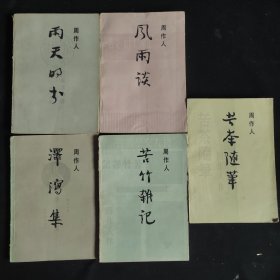 周作人
雨天的书
周作人
风雨谈
周作人
苦茶随笔
周作人
泽泻集
周作人
苦竹杂记